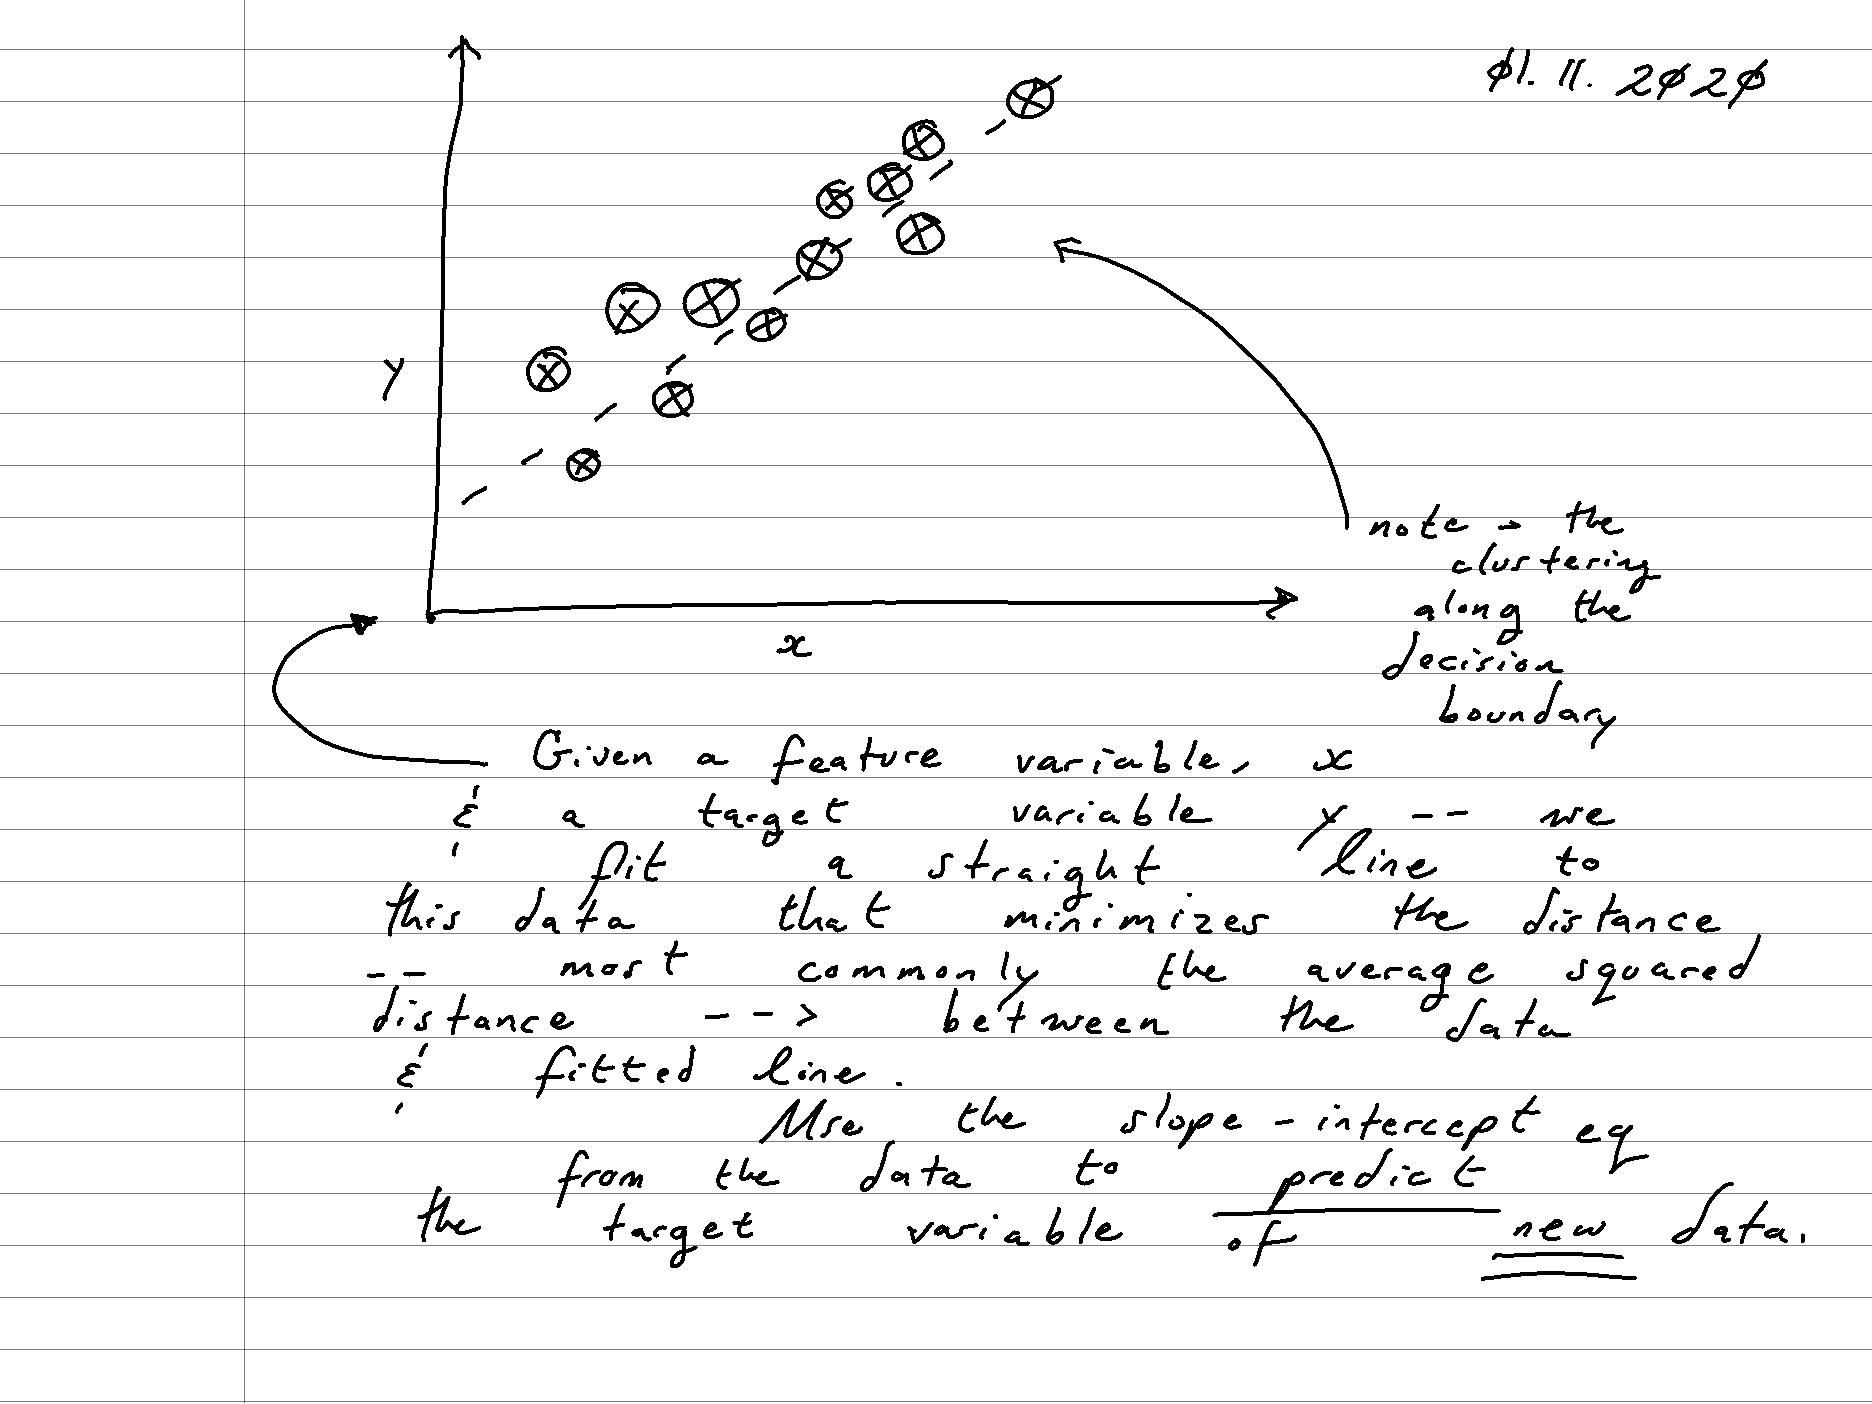 01. 11. 2020
y
x
note - the
clustering
along the
decision
boundary
Given a feature variable, x
& a target variable y -- we
fit a straight line to
this data that minimizes the distance
-- most commonly the average squared
distance --> between the data
& fitted line.
Use the slope-intercept eq
from the data to predict
the target variable of new data.